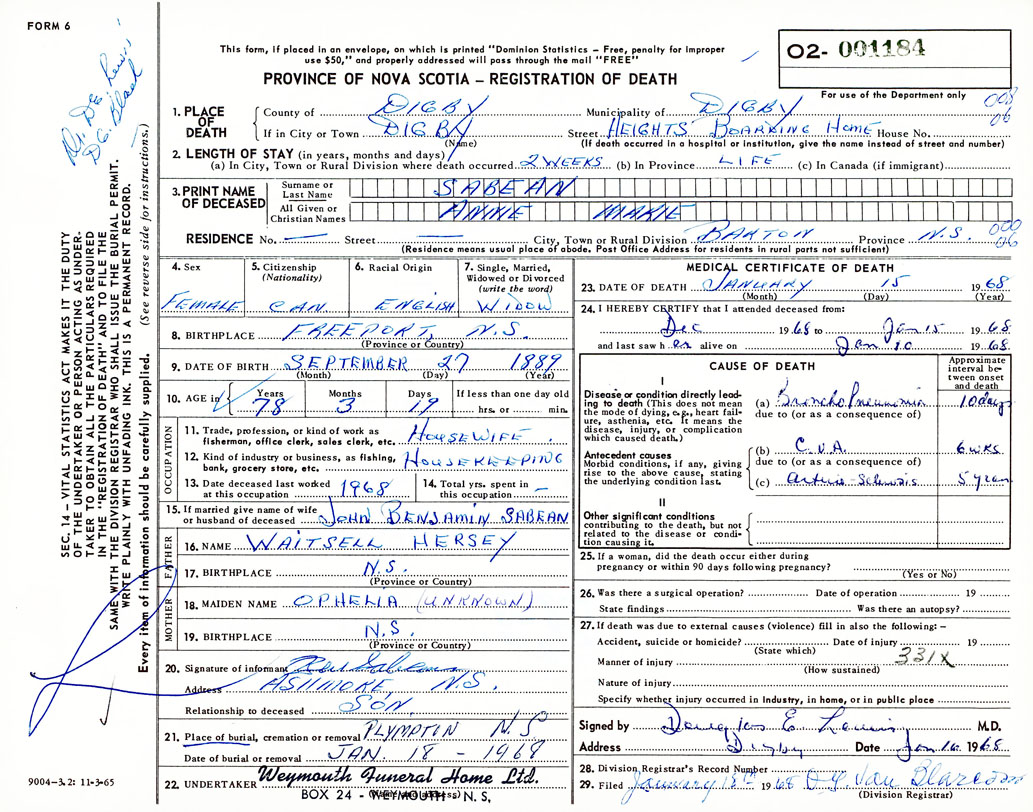 FORM 6
This form, if placed in an envelope, on which is printed "Dominion Statistics – Free, penalty for improper
use $50," and properly addressed will pass through the mail "FREE"
PROVINCE OF NOVA SCOTIA – REGISTRATION OF DEATH
O2- 001184
For use of the Department only
008
06
1. PLACE OF DEATH
County of DIGBY Municipality of DIGBY
If in City or Town DIGBY Street HEIGHTS BOARDING HOME House No.
(Name) (If death occurred in a hospital or institution, give the name instead of street and number)
2. LENGTH OF STAY (in years, months and days)
(a) In City, Town or Rural Division where death occurred 2 WEEKS (b) In Province LIFE (c) In Canada (if immigrant)
3. PRINT NAME OF DECEASED
Surname or Last Name SABEAN
All Given or Christian Names ANNIE MARIE
RESIDENCE No. — Street — City, Town or Rural Division BARTON Province N.S.
000
06
(Residence means usual place of abode. Post Office Address for residents in rural parts not sufficient)
4. Sex FEMALE
5. Citizenship (Nationality) CAN.
6. Racial Origin ENGLISH
7. Single, Married, Widowed or Divorced (write the word) WIDOW
8. BIRTHPLACE FREEPORT, N.S.
(Province or Country)
9. DATE OF BIRTH SEPTEMBER 27 1889
(Month) (Day) (Year)
10. AGE in Years 78 Months 3 Days 19 If less than one day old hrs. or min.
OCCUPATION
11. Trade, profession, or kind of work as fisherman, office clerk, sales clerk, etc. HOUSEWIFE
12. Kind of industry or business, as fishing, bank, grocery store, etc. HOUSEKEEPING
13. Date deceased last worked at this occupation 1968
14. Total yrs. spent in this occupation —
15. If married give name of wife or husband of deceased JOHN BENJAMIN SABEAN
FATHER
16. NAME WAITSELL HERSEY
17. BIRTHPLACE N.S.
(Province or Country)
MOTHER
18. MAIDEN NAME OPHELIA (UNKNOWN)
19. BIRTHPLACE N.S.
(Province or Country)
20. Signature of informant Sabean
Address ASHMORE, N.S.
Relationship to deceased SON
21. Place of burial, cremation or removal PLYMPTON N S
Date of burial or removal JAN. 18 - 1968
22. UNDERTAKER Weymouth Funeral Home Ltd.
BOX 24 - WEYMOUTH - N. S,
MEDICAL CERTIFICATE OF DEATH
23. DATE OF DEATH JANUARY 15 1968
(Month) (Day) (Year)
24. I HEREBY CERTIFY that I attended deceased from:
Dec 1968 to Jan 15 1968
and last saw her alive on Jan 10 1968.
CAUSE OF DEATH
Approximate interval between onset and death
I
Disease or condition directly leading to death (This does not mean the mode of dying, e.g., heart failure, asthenia, etc. It means the disease, injury, or complication which caused death.)
(a) Broncho Pneumonia 10 days
due to (or as a consequence of)
Antecedent causes
Morbid conditions, if any, giving rise to the above cause, stating the underlying condition last.
(b) C.V.A. 6 wks
due to (or as a consequence of)
(c) 5 years
II
Other significant conditions
contributing to the death, but not related to the disease or condition causing it.
25. If a woman, did the death occur either during
pregnancy or within 90 days following pregnancy?
(Yes or No)
26. Was there a surgical operation? Date of operation 19
State findings Was there an autopsy?
27. If death was due to external causes (violence) fill in also the following: –
Accident, suicide or homicide? Date of injury 19
(State which)
331X
Manner of injury
(How sustained)
Nature of injury
Specify whether injury occurred in Industry, in home, or in public place
Signed by Douglas E. Lewis M.D.
Address Digby Date Jan 16 1968
28. Division Registrar's Record Number
29. Filed January 18th 1968
(Division Registrar)
Dr. D E. Lewis
D G. Black
SEC. 14 – VITAL STATISTICS ACT MAKES IT THE DUTY
OF THE UNDERTAKER OR PERSON ACTING AS UNDER-
TAKER TO OBTAIN ALL THE PARTICULARS REQUIRED
IN THE "REGISTRATION OF DEATH" AND TO FILE THE
SAME WITH THE DIVISION REGISTRAR WHO SHALL ISSUE THE BURIAL PERMIT.
WRITE PLAINLY WITH UNFADING INK. THIS IS A PERMANENT RECORD.
Every item of information should be carefully supplied. (See reverse side for instructions.)
9004–3.2: 11-3-65